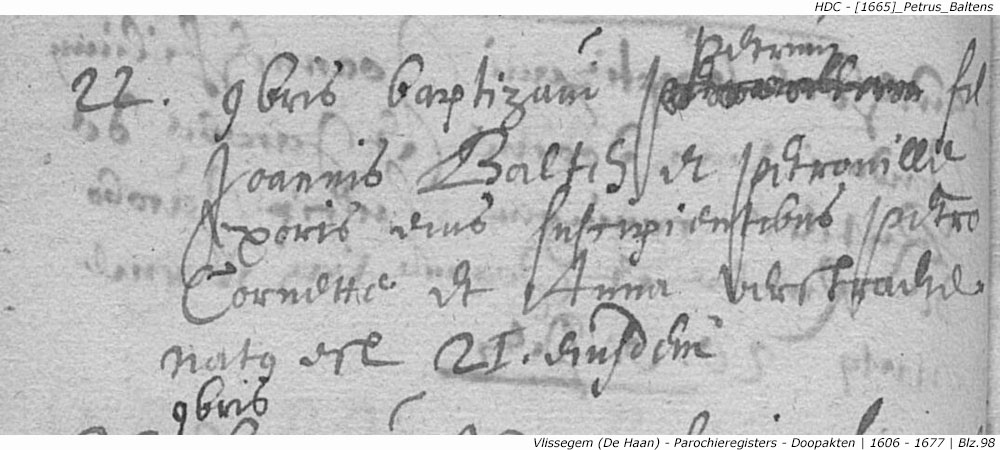 HDC - [1665]_Petrus_Baltens
petrum
22. 9bris baptizavi fil
Joannis Baltens et petronillae
uxoris eius suscipientibus petro
Cornette et Anna verstraete.
natus est 21. eiusdem
9bris
Vlissegem (De Haan) - Parochieregisters - Doopakten | 1606 - 1677 | Blz.98